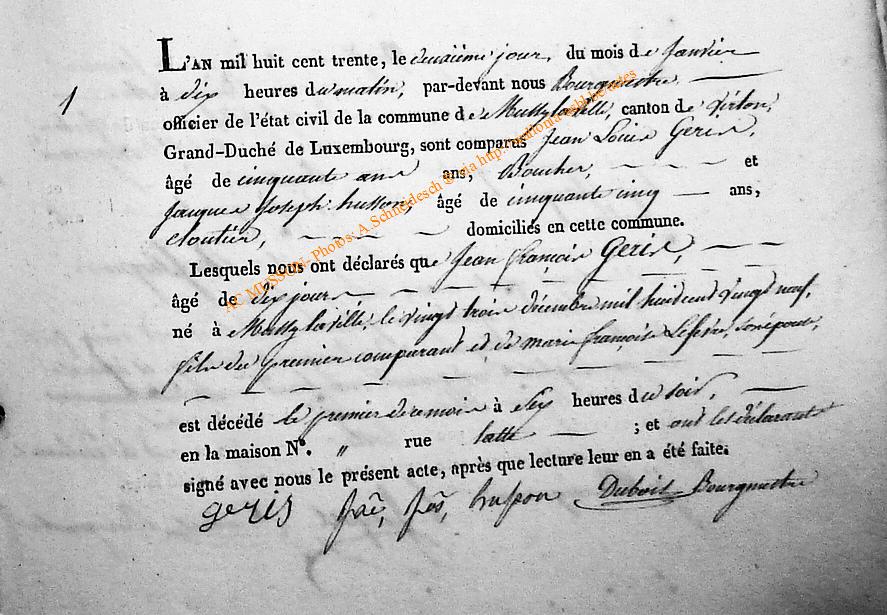 1
L'AN mil huit cent trente, le deuxième jour, du mois de Janvier
à dix heures du matin, par-devant nous Bourgmestre
officier de l'état civil de la commune de Mussy la ville, canton de virton,
Grand-Duché de Luxembourg, sont comparus Jean Louis Geris,
âgé de cinquante ans ans, Boucher, et
Jacques Joseph husson, âgé de cinquante cinq ans,
cloutier, domiciliés en cette commune.
Lesquels nous ont déclarés que Jean françois Geris,
âgé de dix jours
né à Mussy la ville, le vingt trois décembre mil huit cent vingt neuf,
fils du premier comparant et de marie françoise Lefevre, son épouse,
est décédé le premier de ce mois à six heures du soir,
en la maison N°. " rue latte ; et ont les déclarants
signé avec nous le présent acte, après que lecture leur en a été faite.
geris husson Dubois Bourgmestre
AC MUSSON- Photos: A.Schneidesch © via http: